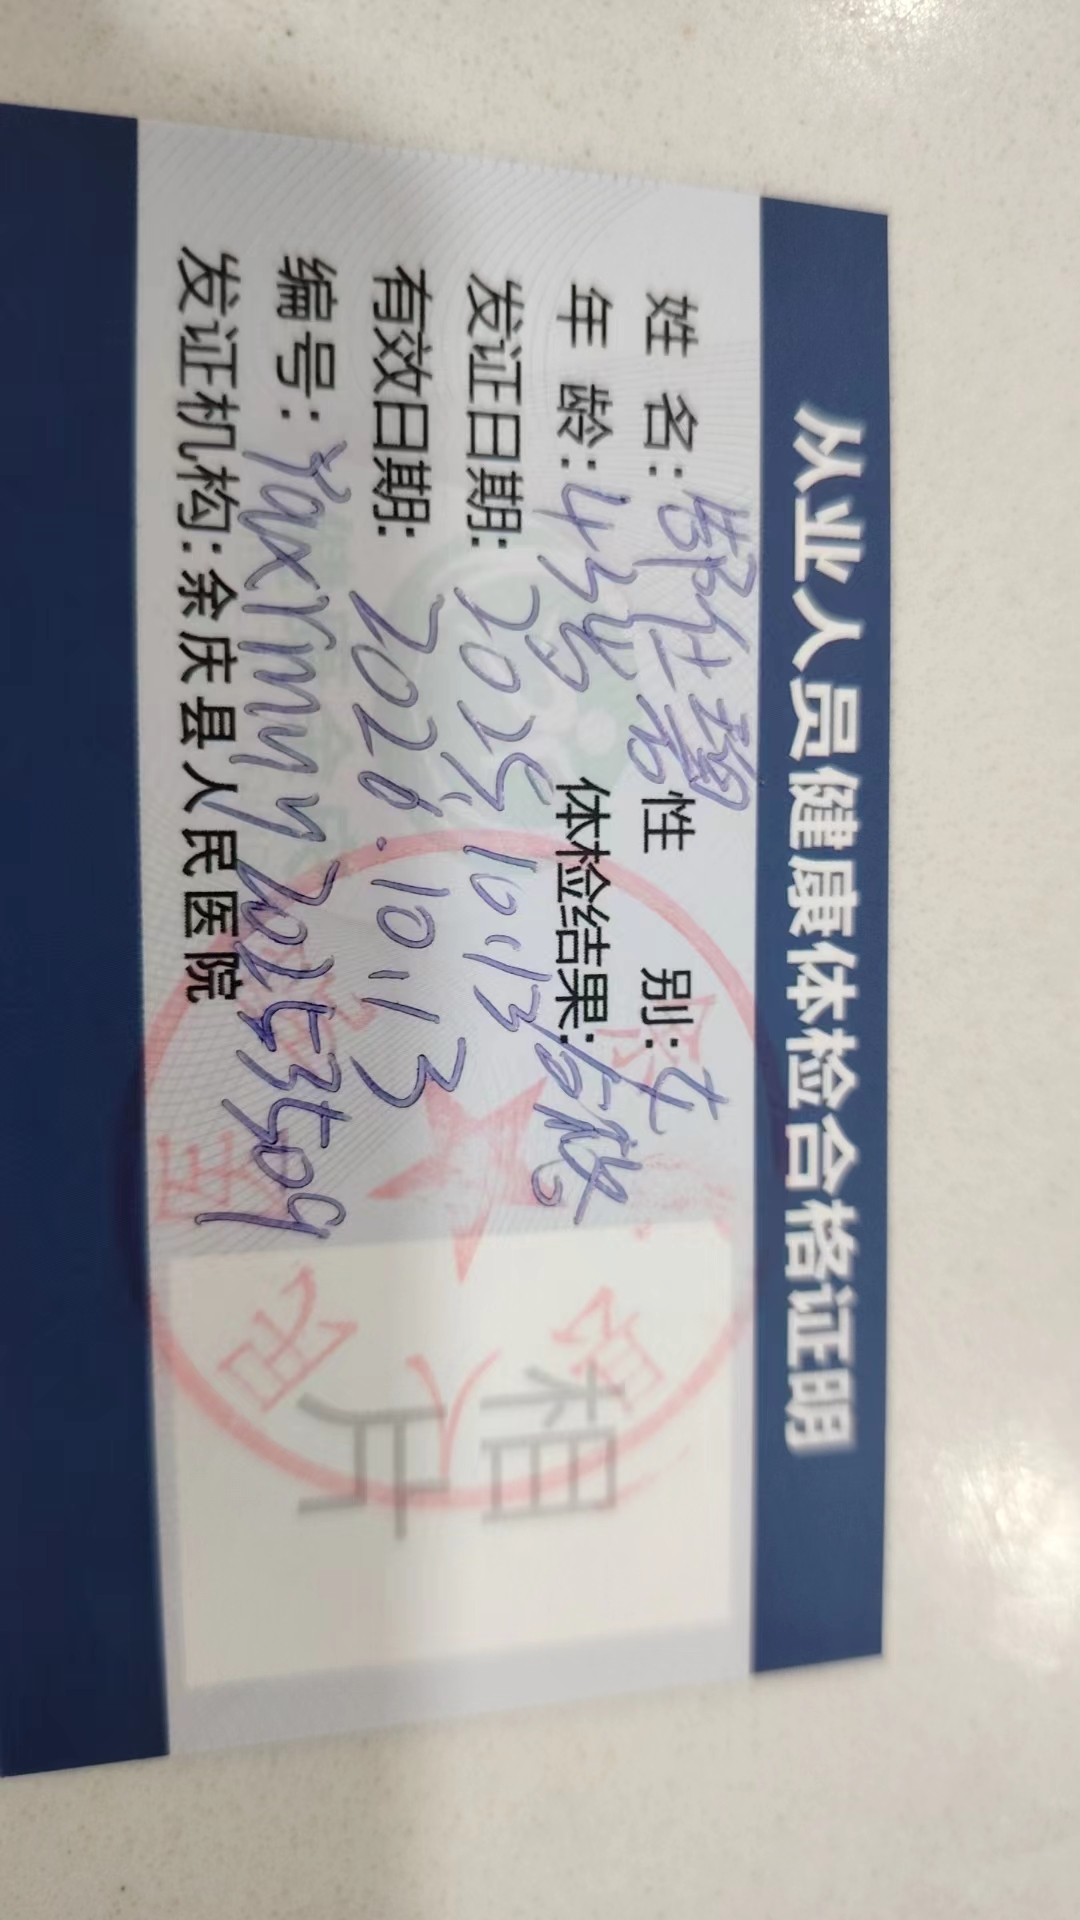 从业人员健康体检合格证明
姓 名: 性 别: 女
年 龄: 43岁 体检结果: 合格
发证日期: 2025.10.13
有效日期: 2026.10.13
编号:
发证机构: 余庆县人民医院
相
片